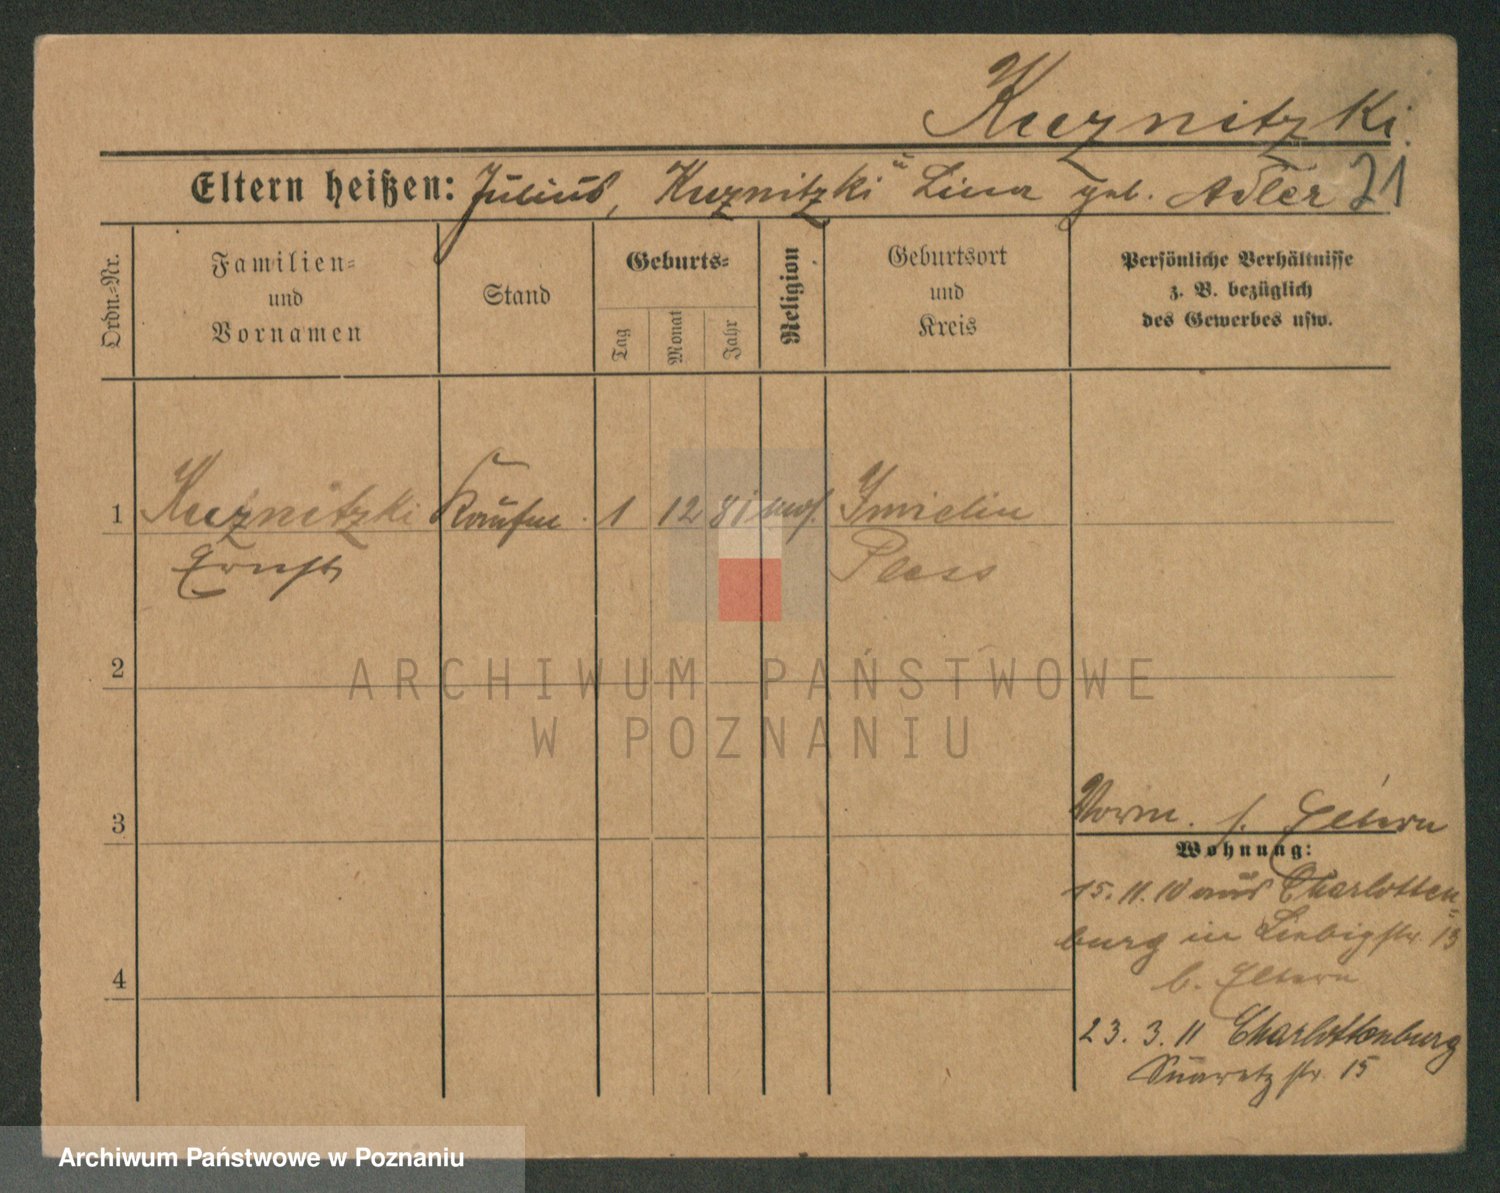 Kuznitzki.
Eltern heißen: Julius, Kuznitzki u Lina geb. Adler 21
Ordn.=Nr.
Familien=
und
Vornamen
Stand
Geburts=
Tag
Monat
Jahr
Religion
Geburtsort
und
Kreis
Persönliche Verhältnisse
z. B. bezüglich
des Gewerbes usw.
1 Kuznitzki Kaufm. 1 12 81 mos. Imielin
Ernst Pless
2
ARCHIWUM PAŃSTWOWE
W POZNANIU
3
Vorm. s. Eltern
Wohnung:
15.11.10 aus Charlotten=
burg in Liebigstr. 13
b. Eltern
4
23.3.11 Charlottenburg
Suaretzstr. 15
Archiwum Państwowe w Poznaniu